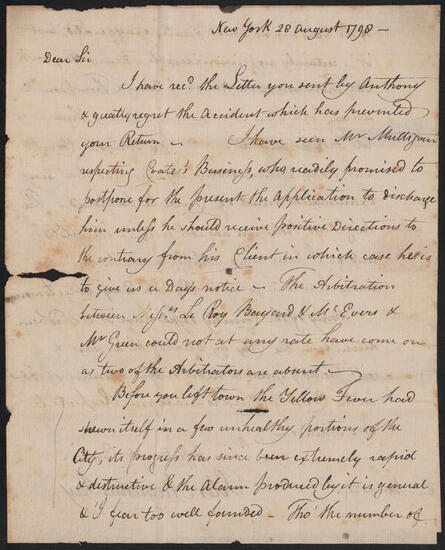 New York 28 August 1798 –
Dear Sir
I have rec.d the Letter you sent by Anthony
& greatly regret the Accident which has prevented
your Return – I have seen Mr Mulligan
respecting Coates's Business, who readily promised to
postpone for the present the Application to discharge
him unless he should receive positive Directions to
the contrary from his Client in which case he is
to give us a Days notice – The Arbitration
between Mess.rs Le Roy Bayard & Mc Evers &
Mr Green could not at any rate have come on
as two of the Arbitrators are absent –
Before you left town the Yellow Fever had
shewn itself in a few unhealthy portions of the
City, its progress has since been extremely rapid
& distructive & the Alarm produced by it is general
& I fear too well founded – Tho' the number of